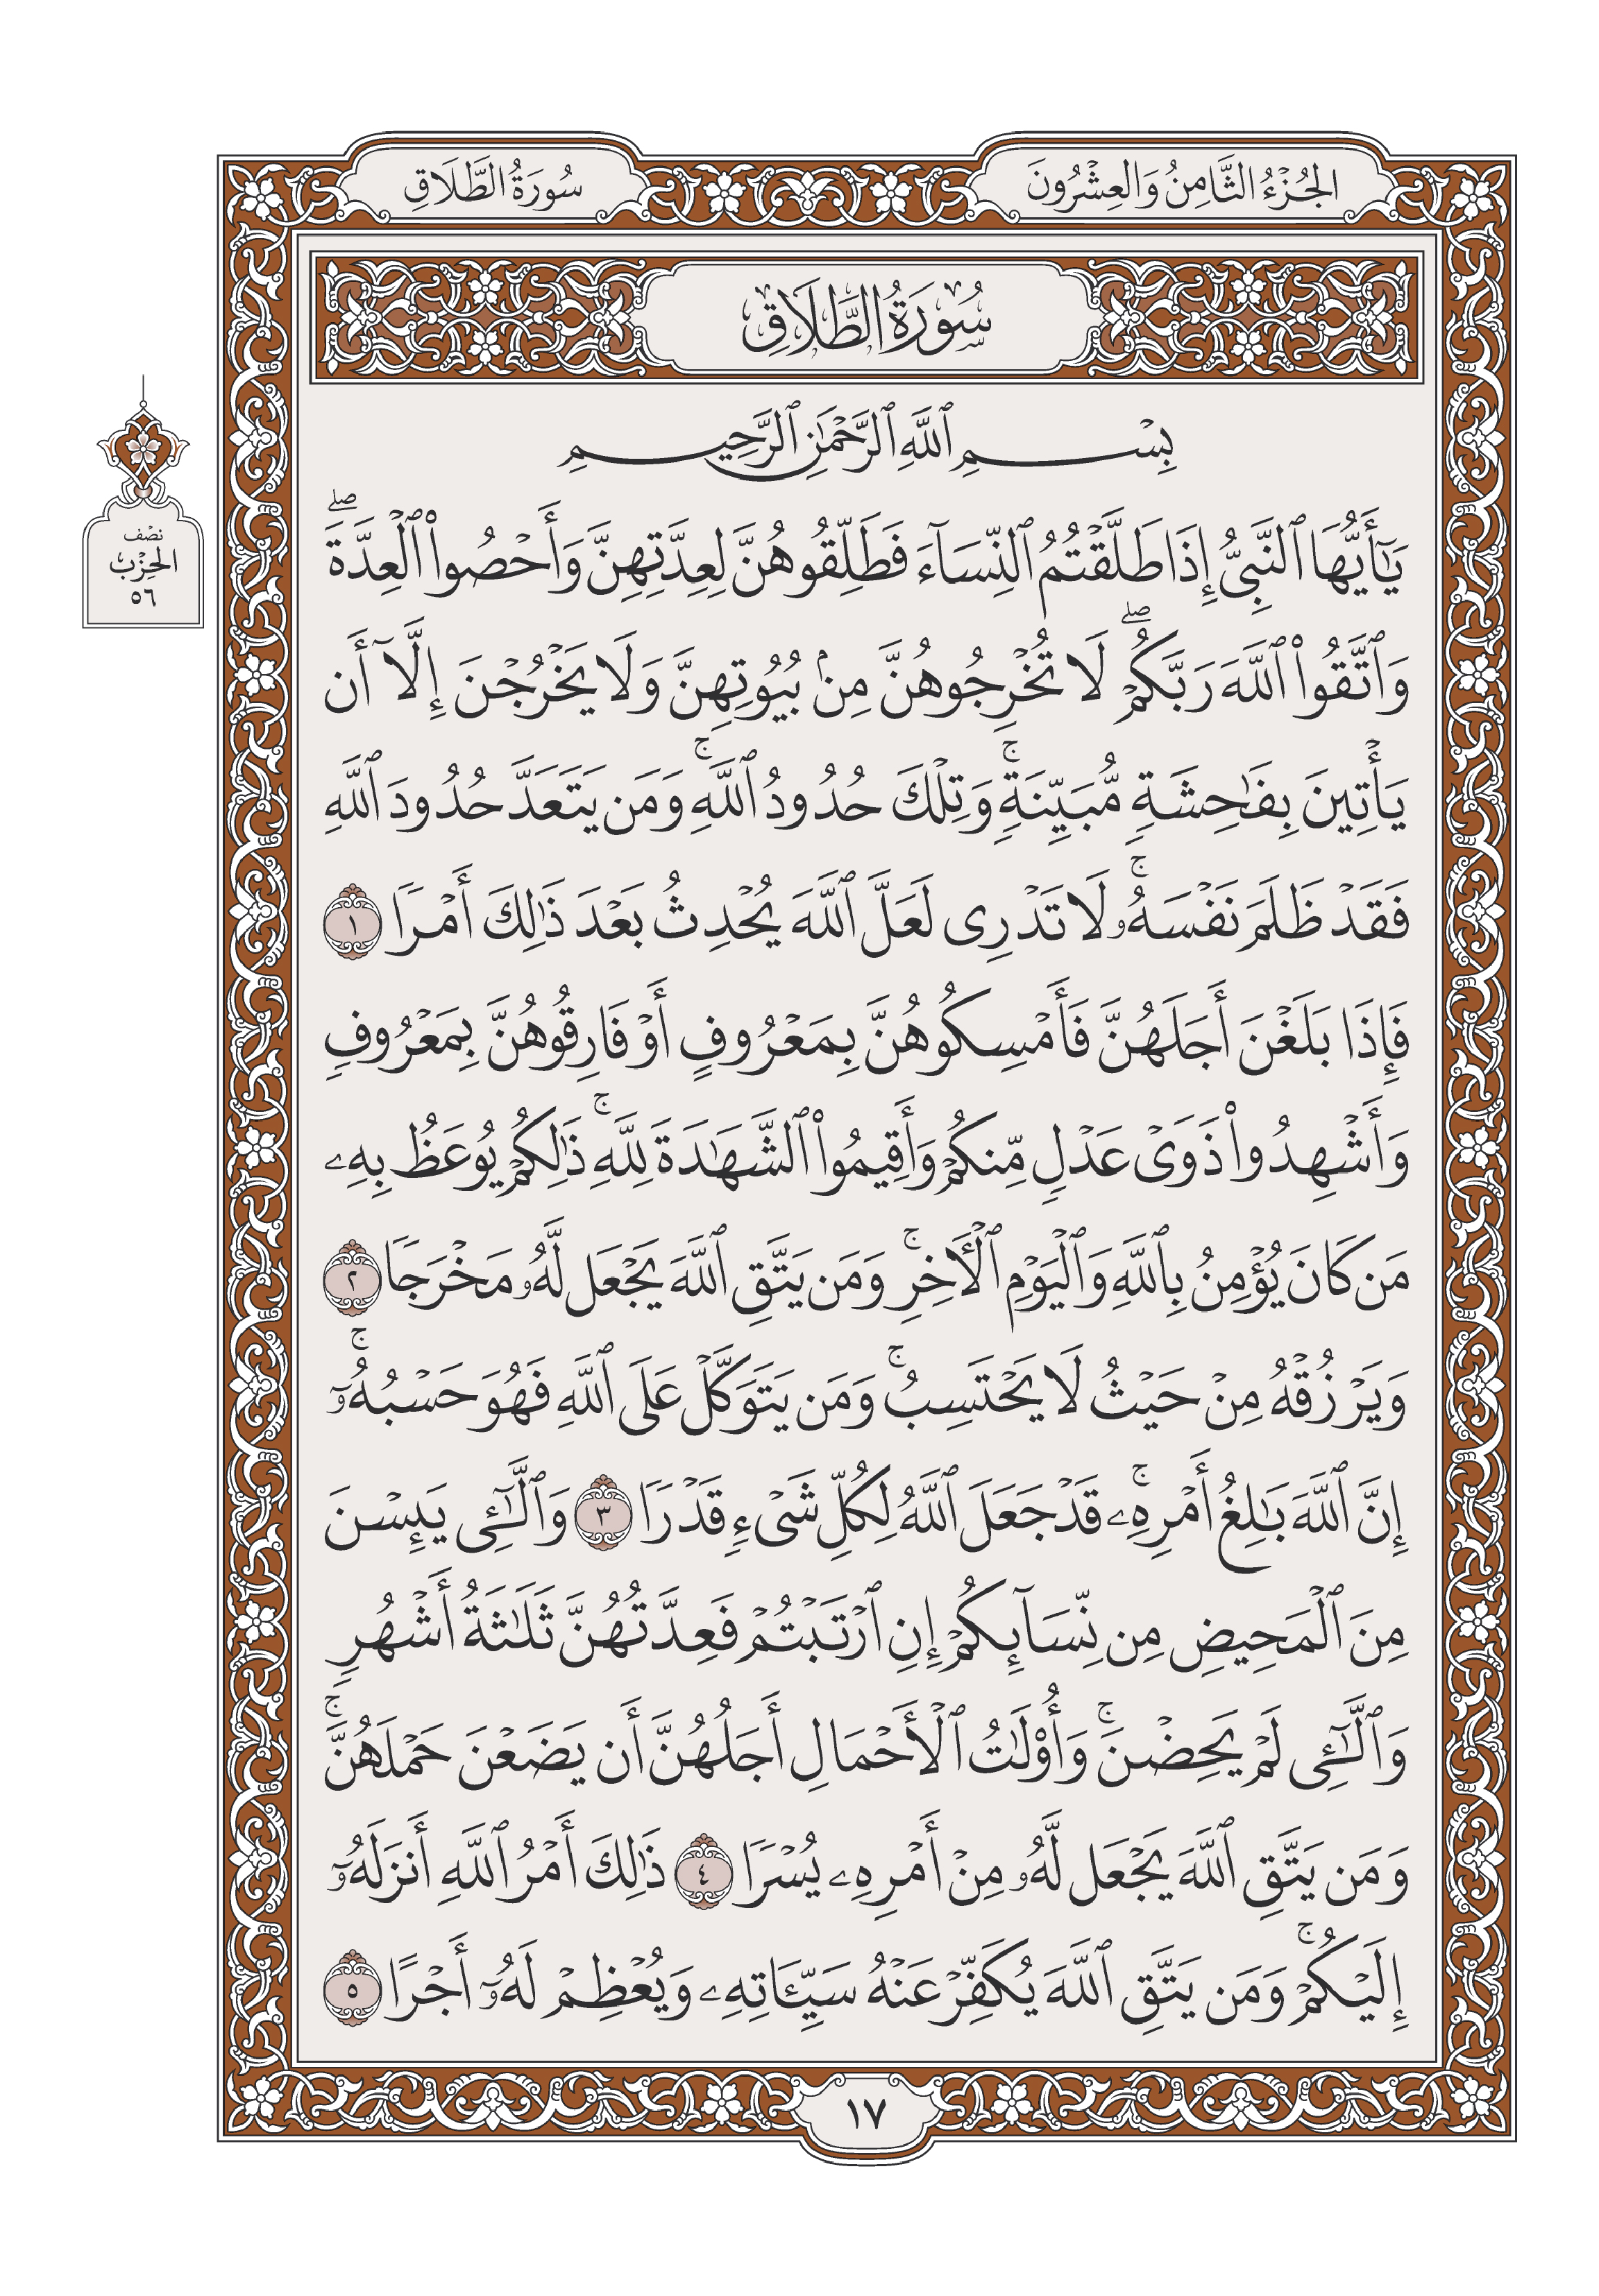 الجُزْءُ الثَّامِنُ وَالعِشْرُونَ
سُورَةُ الطَّلَاقِ
سُورَةُ الطَّلَاقِ
بِسْمِ ٱللَّهِ ٱلرَّحْمَٰنِ ٱلرَّحِيمِ
يَٰٓأَيُّهَا ٱلنَّبِىُّ إِذَا طَلَّقْتُمُ ٱلنِّسَآءَ فَطَلِّقُوهُنَّ لِعِدَّتِهِنَّ وَأَحْصُوا۟ ٱلْعِدَّةَ ۖ
وَٱتَّقُوا۟ ٱللَّهَ رَبَّكُمْ ۖ لَا تُخْرِجُوهُنَّ مِنۢ بُيُوتِهِنَّ وَلَا يَخْرُجْنَ إِلَّآ أَن
يَأْتِينَ بِفَٰحِشَةٍ مُّبَيِّنَةٍ ۚ وَتِلْكَ حُدُودُ ٱللَّهِ ۚ وَمَن يَتَعَدَّ حُدُودَ ٱللَّهِ
فَقَدْ ظَلَمَ نَفْسَهُۥ ۚ لَا تَدْرِى لَعَلَّ ٱللَّهَ يُحْدِثُ بَعْدَ ذَٰلِكَ أَمْرًا ١
فَإِذَا بَلَغْنَ أَجَلَهُنَّ فَأَمْسِكُوهُنَّ بِمَعْرُوفٍ أَوْ فَارِقُوهُنَّ بِمَعْرُوفٍ
وَأَشْهِدُوا۟ ذَوَىْ عَدْلٍ مِّنكُمْ وَأَقِيمُوا۟ ٱلشَّهَٰدَةَ لِلَّهِ ۚ ذَٰلِكُمْ يُوعَظُ بِهِۦ
مَن كَانَ يُؤْمِنُ بِٱللَّهِ وَٱلْيَوْمِ ٱلْءَاخِرِ ۚ وَمَن يَتَّقِ ٱللَّهَ يَجْعَل لَّهُۥ مَخْرَجًا ٢
وَيَرْزُقْهُ مِنْ حَيْثُ لَا يَحْتَسِبُ ۚ وَمَن يَتَوَكَّلْ عَلَى ٱللَّهِ فَهُوَ حَسْبُهُۥٓ ۚ
إِنَّ ٱللَّهَ بَٰلِغُ أَمْرِهِۦ ۚ قَدْ جَعَلَ ٱللَّهُ لِكُلِّ شَىْءٍ قَدْرًا ٣ وَٱلَّٰٓـِٔى يَئِسْنَ
مِنَ ٱلْمَحِيضِ مِن نِّسَآئِكُمْ إِنِ ٱرْتَبْتُمْ فَعِدَّتُهُنَّ ثَلَٰثَةُ أَشْهُرٍ
وَٱلَّٰٓـِٔى لَمْ يَحِضْنَ ۚ وَأُو۟لَٰتُ ٱلْأَحْمَالِ أَجَلُهُنَّ أَن يَضَعْنَ حَمْلَهُنَّ ۚ
وَمَن يَتَّقِ ٱللَّهَ يَجْعَل لَّهُۥ مِنْ أَمْرِهِۦ يُسْرًا ٤ ذَٰلِكَ أَمْرُ ٱللَّهِ أَنزَلَهُۥٓ
إِلَيْكُمْ ۚ وَمَن يَتَّقِ ٱللَّهَ يُكَفِّرْ عَنْهُ سَيِّـَٔاتِهِۦ وَيُعْظِمْ لَهُۥٓ أَجْرًا ٥
نصف
الحِزْب
٥٦
١٧